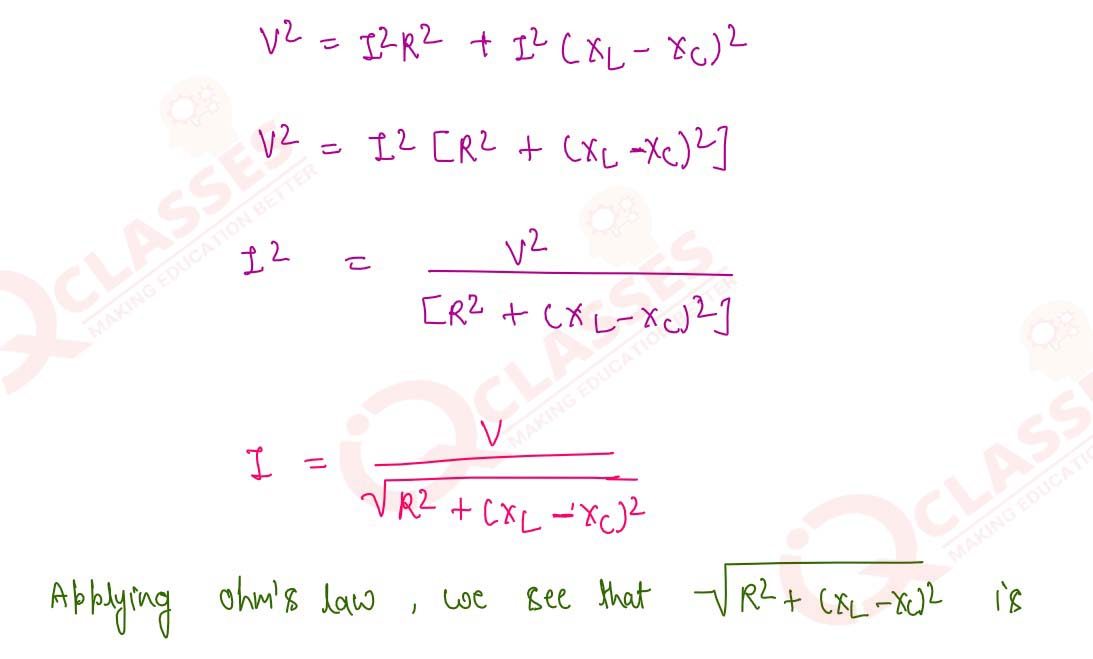 V² = I²R² + I² (X_L - X_C)²
V² = I² [R² + (X_L - X_C)²]
I² = V² / [R² + (X_L - X_C)²]
I = V / √(R² + (X_L - X_C)²)
Applying ohm's law, we see that √(R² + (X_L - X_C)²) is
iQ CLASSES
MAKING EDUCATION BETTER
iQ CLASSES
MAKING EDUCATION BETTER
iQ CLASSES
MAKING EDUCATION